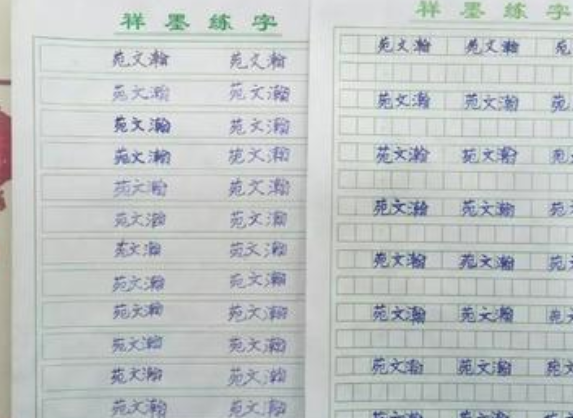 祥墨练字
苑文瀚 苑文瀚
苑文瀚 苑文瀚
苑文瀚 苑文瀚
苑文瀚 苑文瀚
苑文瀚 苑文瀚
苑文瀚 苑文瀚
苑文瀚 苑文瀚
苑文瀚 苑文瀚
苑文瀚 苑文瀚
苑文瀚 苑文瀚
苑文瀚 苑文瀚
苑文瀚 苑文瀚
祥墨练字
苑文瀚 苑文瀚 苑
苑文瀚 苑文瀚 苑
苑文瀚 苑文瀚 苑
苑文瀚 苑文瀚 苑
苑文瀚 苑文瀚 苑
苑文瀚 苑文瀚 苑
苑文瀚 苑文瀚 苑文